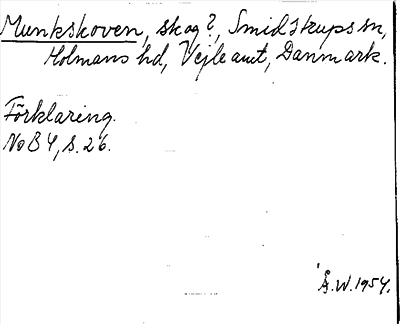 Munkskoven, skog?, Smidstrups sn,
Holmans hd, Vejle amt, Danmark.
Förklaring.
NoB 4, s. 26.
Å.W. 1954.